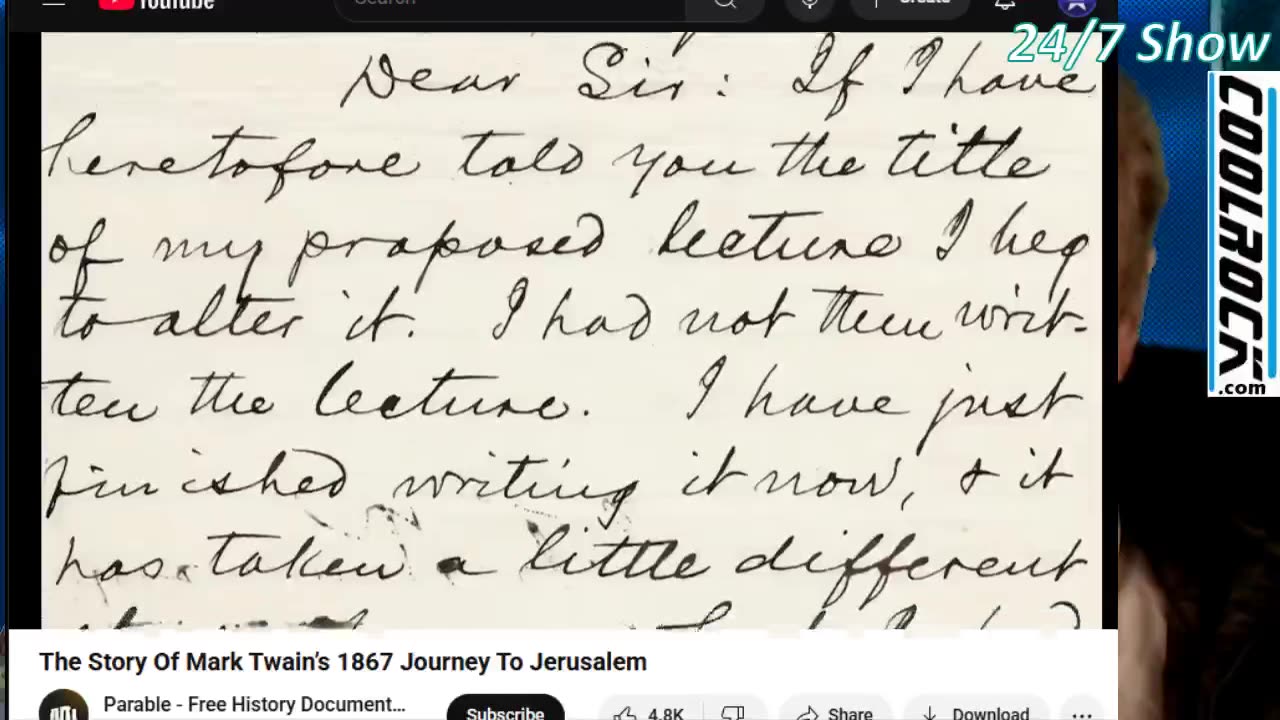 YouTube
Search
Create
24/7 Show
COOLROCK
.com
Dear Sir: If I have
heretofore told you the title
of my proposed lecture I beg
to alter it. I had not then writ-
ten the lecture. I have just
finished writing it now, & it
has taken a little different
The Story Of Mark Twain’s 1867 Journey To Jerusalem
Parable - Free History Document...
Subscribe
4.8K
Share
Download